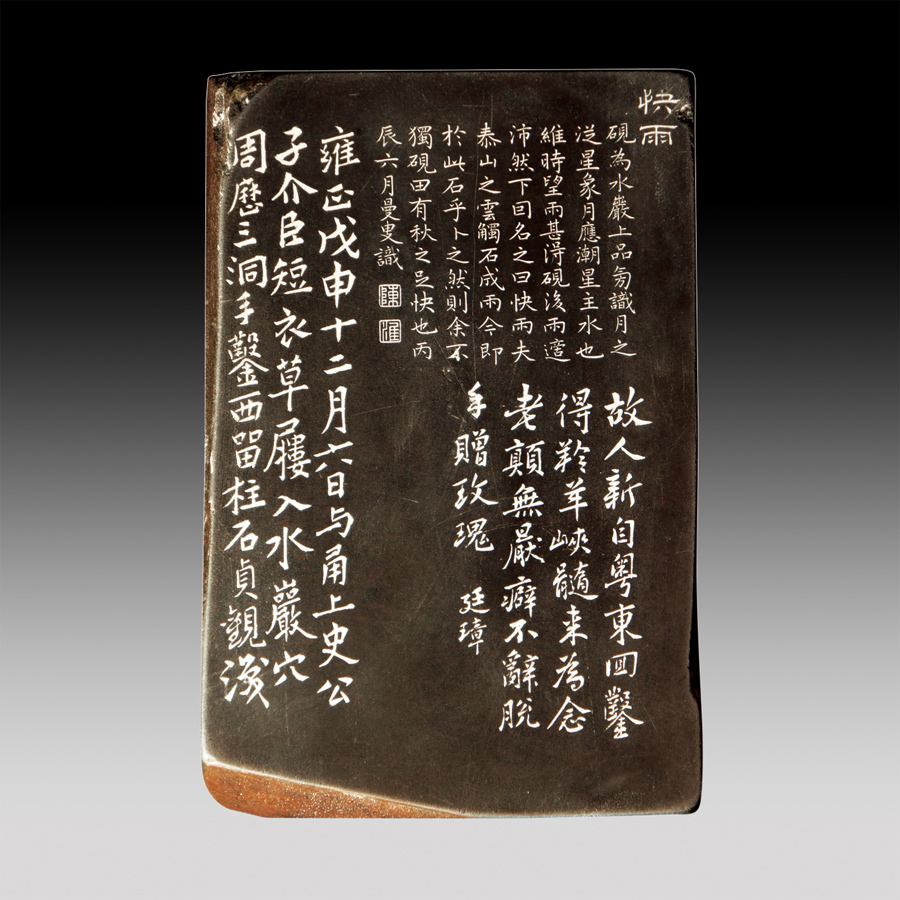 快雨
硯為水巖上品旁識月之
從星象月應潮星主水也
維時望雨甚淂硯後雨
沛然下囙名之曰快雨夫
泰山之雲觸石成雨今即
於此石乎卜之然則余不
獨硯田有秋之足快也丙
辰六月曼叟識
陳
淮
故人新自粵東囬鑿
得羚羊峽髓来為念
老顛無厭癖不辭脫
手贈玫瑰
廷璋
雍正戊申十二月六日与甬上史公
子介臣短衣草屨入水巖穴
周歷三洞手鑿西畱柱石貞觀識